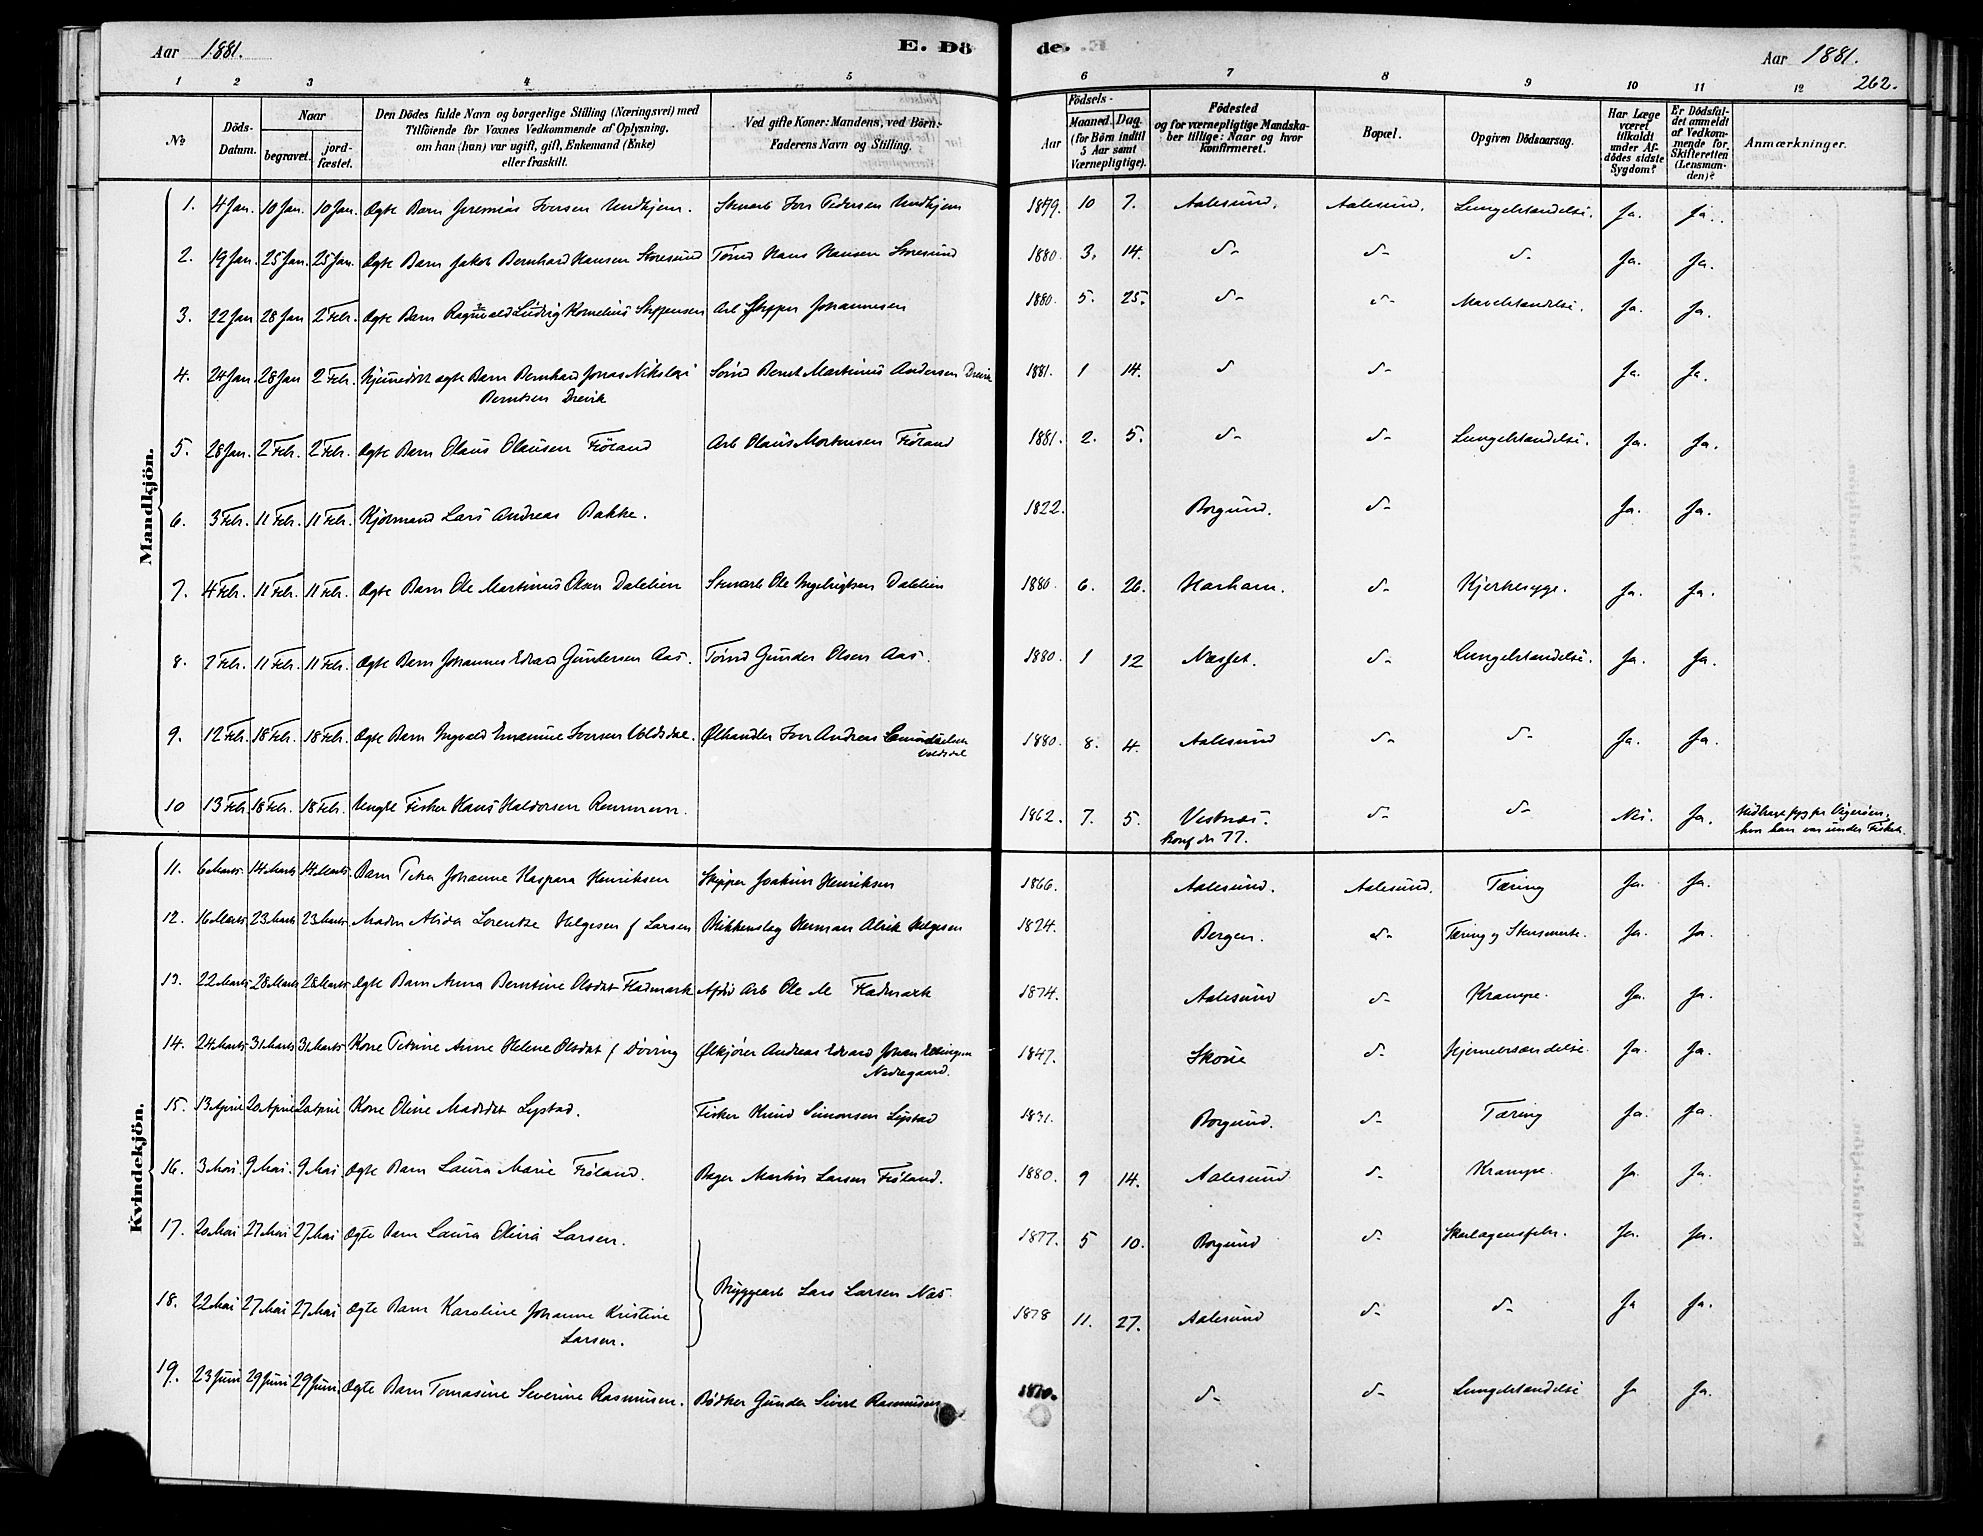 Aar 1881. E. Dö
de. Aar 1881.
262.
1 2 3 4 5 6 7 8 9 10 11 12
No.
Döds-Datum.
Naar
begravet.
jord-fæstet.
Den Dödes fulde Navn og borgerlige Stilling (Næringsvei) med
Tilföiende for Voxnes Vedkommende af Oplysning,
om han (hun) var ugift, gift, Enkemand (Enke)
eller fraskilt.
Ved gifte Koner: Mandens, ved Börn:
Faderens Navn og Stilling.
Aar
Födsels-
Maaned. Dag.
(for Börn indtil
5 Aar samt
Værnepligtige).
Födested
og for værnepligtige Mandska-
ber tillige: Naar og hvor
konfirmeret.
Bopæl.
Opgiven Dödsaarsag.
Har Læge
været
tilkaldt
under Af-
dödes sidste
Sygdom?
Er Dödsfal-
det anmeldt
af Vedkom-
mende for
Skifteretten
(Lensman-
den)?
Anmærkninger.
Mandkjön.
1. 4 Jan. 10 Jan. 10 Jan. Ægte Barn Jeremias Iversen Undhjem. Stenarb Iver Pedersen Undhjem 1879. 10 7. Aalesund. Aalesund. Lungebetændelse. Ja. Ja.
2. 19 Jan. 25 Jan. 25 Jan. Ægte Barn Jakob Bernhard Hansen Storesund Tømd Hans Hansen Storesund 1880. 3. 14. d- d- d- Ja. Ja.
3. 22 Jan 28 Jan 2 Febr. Ægte Barn Ragnvald Ludvig Kornelius Skippensen Arb Johannesen 1880. 5. 25. d- d- Ja. Ja.
4. 24 Jan. 28 Jan 2 Febr. Hjemedøbt ægte Barn Bernhard Jonas Nikolai Bernt Martinus Andersen Drevik 1881. 1 14. d d- Ja. Ja.
Berntsen Drevik
5. 28 Jan. 2 Febr. 2 Febr. Ægte Barn Olaus Olausen Frøland Arb Olaus Mortensen Frøland 1881. 2. 5. d- d- Lungebetændelse. Ja. Ja.
6. 3 Febr. 11 Febr. 11 Febr. Kjøbmand Lars Andreas Bakke. 1822. Borgund. d- Ja. Ja.
7. 4 Febr. 11 Febr. 11 Febr. Ægte Barn Ole Martinus Olsen Dalebien Stenarb Ole Ingebrigtsen Dalebien 1880. 6. 26. Harham. d- Ja. Ja.
8. 7 Febr. 11 Febr. 11 Febr. Ægte Barn Johannes Edvard Gundersen Aas. Tømd Gunder Olsen Aas. 1880. 1 12 Næsset. d- Lungebetændelse. Ja. Ja.
9. 12 Febr. 18 Febr. 18 Febr. Ægte Barn Ingvald Iversen Voldsdal. Ølhandler Iver Andreas 1880. 8. 4. Aalesund d- d- Ja. Ja.
Voldsdal
10 13 Febr. 18 Febr. 18 Febr. Ungkl Fisker Hans Haldorsen Remmem. 1862. 7. 5. Vestnæs. d- d- Nei. Ja. Vigerøen,
Konf der 77. hvor han var under Fisket.
Kvindekjön.
11. 6 Marts 14 Marts 14 Marts. Barn Petra Johanne Kaspara Henriksen Skipper Joakim Henriksen 1866. Aalesund. Aalesund. Tæring Ja. Ja.
12. 16 Marts. 23 Marts 23 Marts Madm Alida Lorentze Helgesen f Larsen Blikkenslag Herman Alrik Helgesen 1824. Bergen. d- Tæring og Ja. Ja.
13. 22 Marts 28 Marts 28 Marts Ægte Barn Anna Berntine Olsdat Fladmark Afdø Arb Ole M Fladmark 1874. Aalesund d- Krampe. Ja. Ja.
14. 24 Marts 31 Marts 31 Marts. Kone Petrine Anne Helene Olsdat f Døving Ølkjører Andreas Edvard Johan Ellingsen 1847. Skoue d- Hjernebetændelse. Ja. Ja.
Nedregaard.
15. 13 April 20 April 20 April Kone Oline Madsdat Lystad. Fisker Knud Simonsen Lystad 1831. Borgund. d- Tæring Ja. Ja.
16. 3 Mai. 9 Mai. 9 Mai Ægte Barn Laura Marie Frøland. Bager Martin Larsen Frøland. 1880. 9 14. Aalesund d- Krampe. Ja. Ja.
17. 20 Mai 27 Mai 27 Mai Ægte Barn Laura Olivia Larsen. 1877. 5 10. Borgund d- Skarlagensfeber. Ja. Ja.
Bryggearb Lars Larsen Næs.
18. 22 Mai 27 Mai 27 Mai Ægte Barn Karoline Johanne Kristine 1878 11. 27. Aalesund d- d- Ja Ja.
Larsen.
19. 23 Juni 29 Juni 29 Juni. Ægte Barn Tomasine Severine Rasmusen. Bødker Gunder Sivert Rasmusen 1870. d- d- Lungebetændelse Ja Ja.